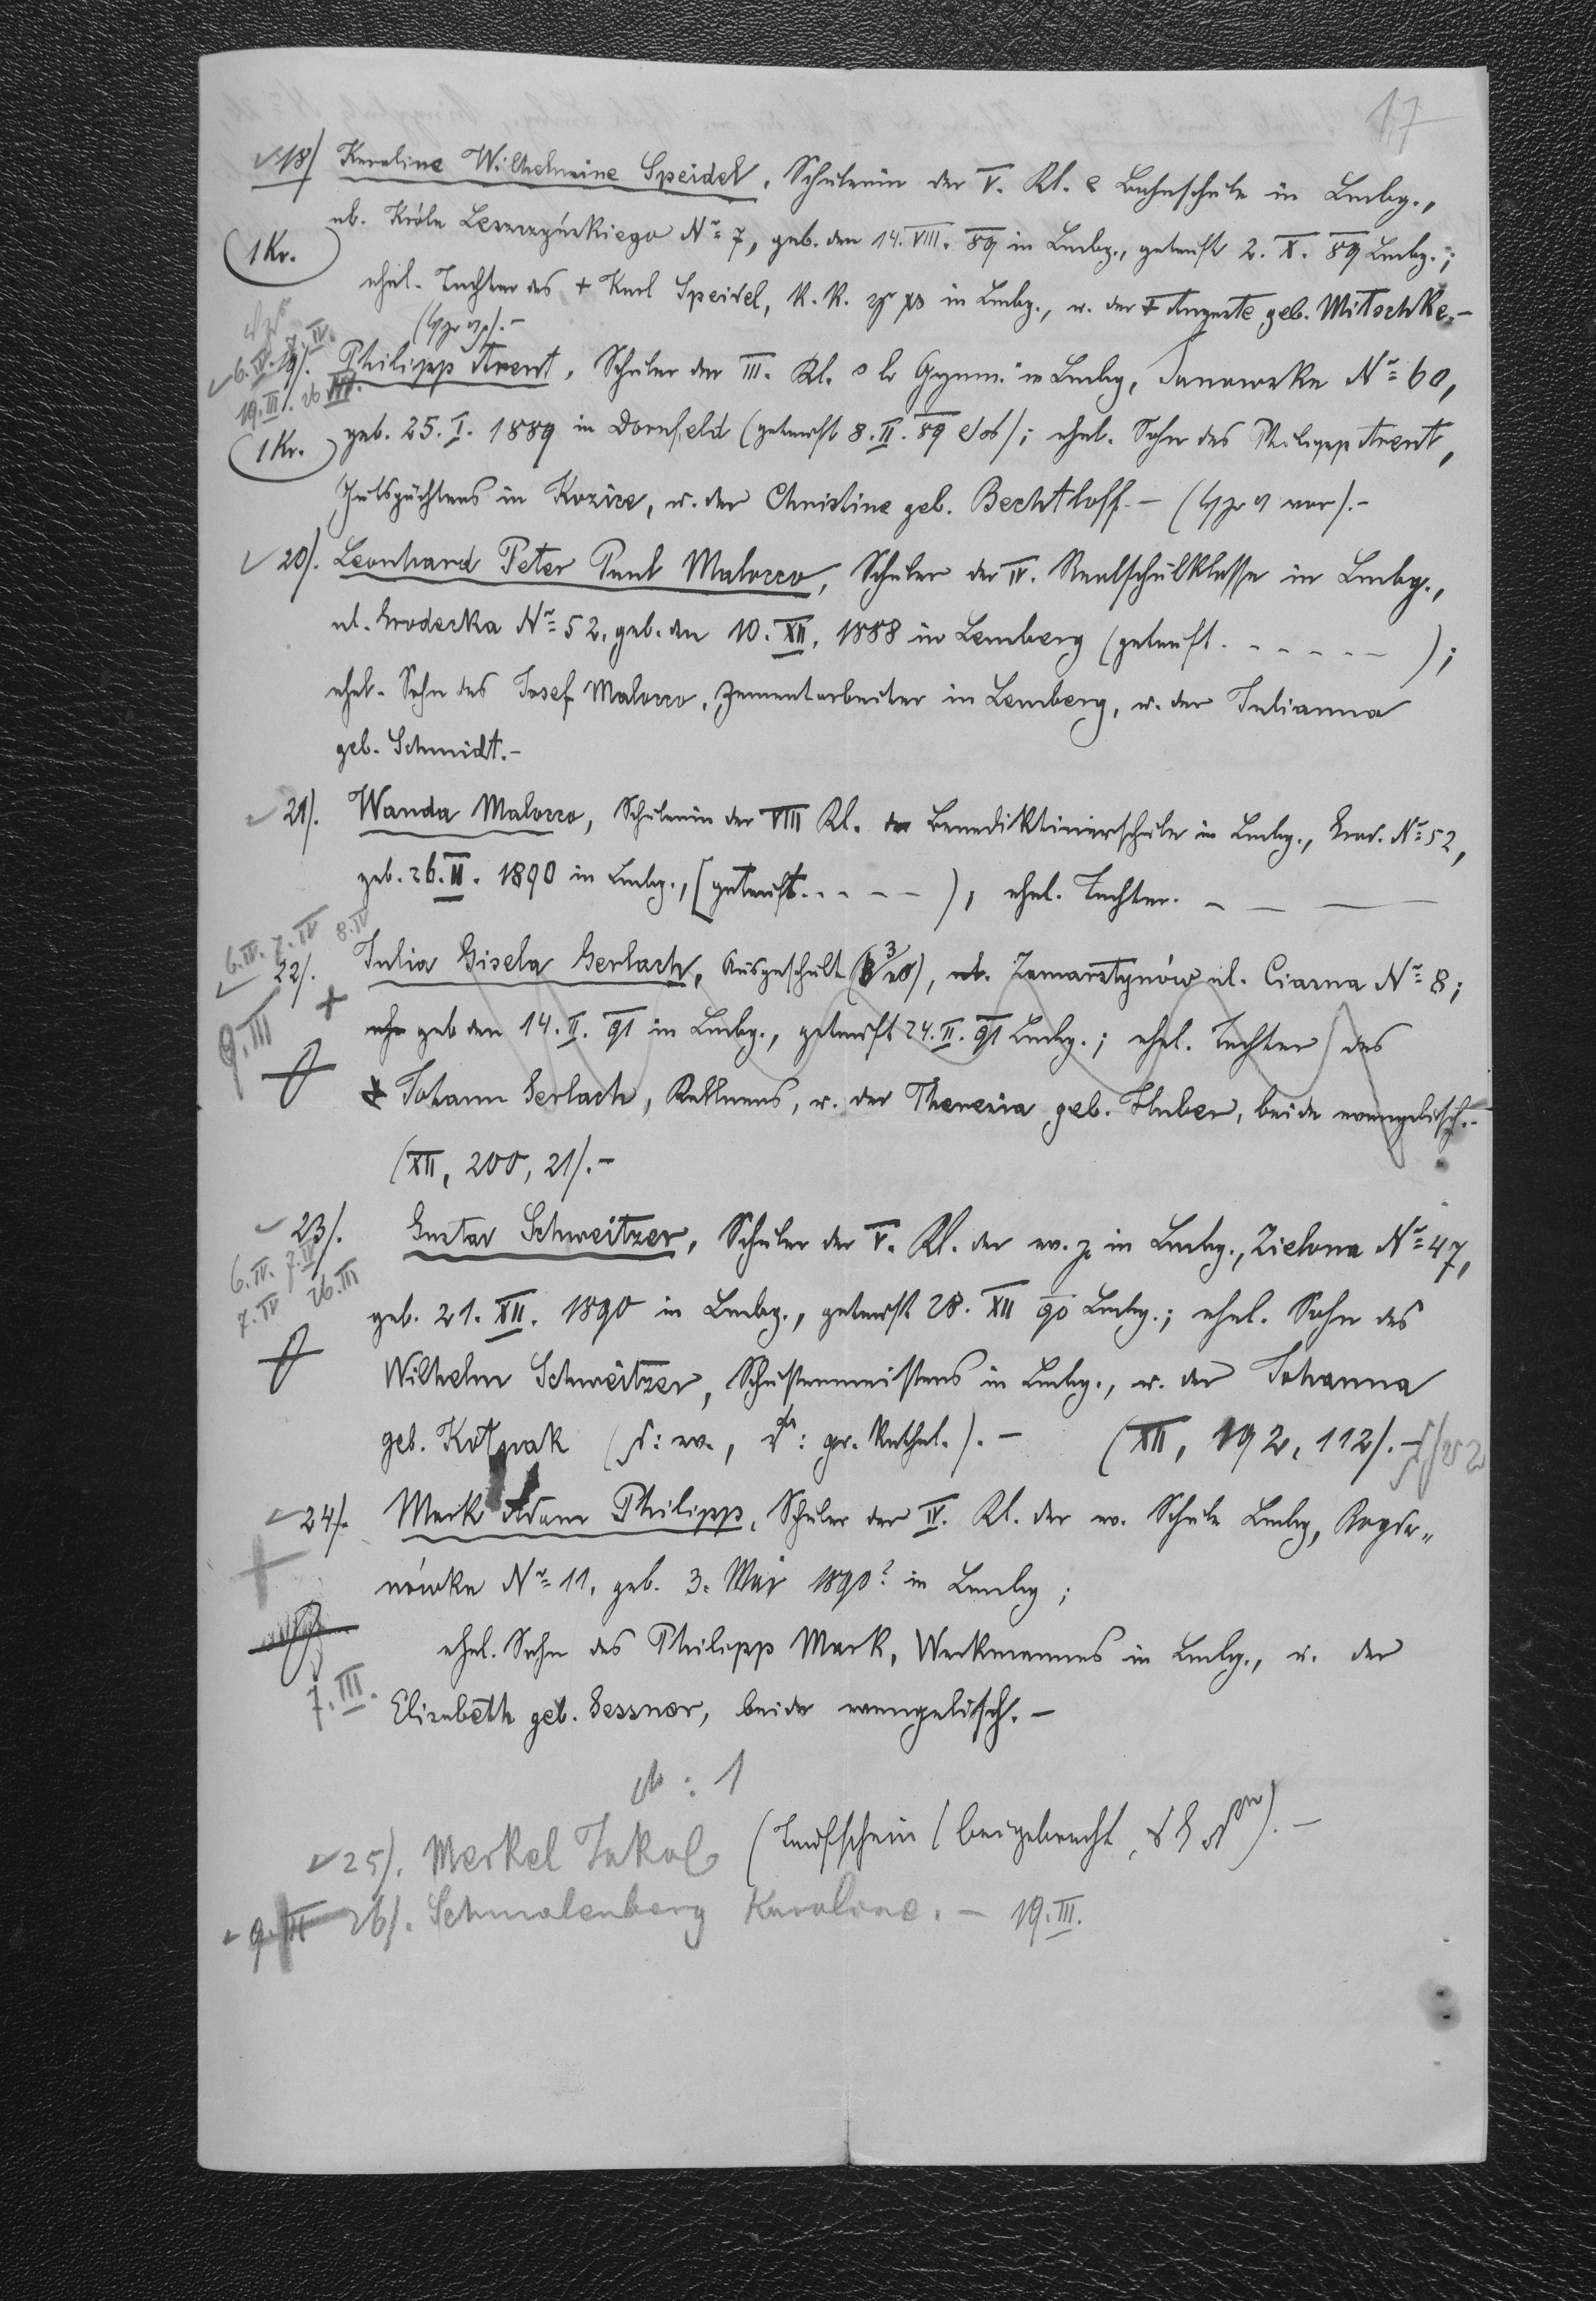 17
18/ Karoline Wilhelmine Speidel, Schülerin der V. Kl. Bahnschule in Lmbg.,
ul. Króla Leszczyńskiego Nr 7, geb. den 14. VIII. 89 in Lmbg., getauft 2. X. 89 Lmbg.;
1 Kr.
ehel. Tochter des + Karl Speidel, K. K. in Lmbg., u. der + Auguste geb. Mitschke.-
6. IV. 7. IV.
19. III. 26 III.
19/. Philipp Arent, Schüler der III. Kl. Gymn. in Lmbg, Janowska Nr 60,
1 Kr.
geb. 25. I. 1889 in Dornfeld (getauft 8. II. 89); ehel. Sohn des Philipp Arent,
Gutspächters in Kozice, u. der Christine geb. Bechtloff.-
20/. Leonhard Peter Paul Malocco, Schüler der IV. Realschulklasse in Lmbg.,
ul. Grodecka Nr 52, geb. den 10. XII. 1888 in Lemberg (getauft . - - - - - );
ehel. Sohn des Josef Malocco, Zementarbeiter in Lemberg, u. der Julianna
geb. Schmidt.-
21/. Wanda Malocco, Schülerin der VIII Kl. der Benediktinerschule in Lmbg., Grod. Nr 52,
geb. 26. II. 1890 in Lmbg., (getauft. - - - - ), ehel. Tochter. - - -
6. IV. 7. IV 8. IV
22/. Julia Gisela Gerlach, Ausgeschult, Zamarstynów ul. Ciasna Nr 8;
9. III
geb den 14. II. 91 in Lmbg., getauft 24. II. 91 Lmbg.; ehel. Tochter des
+ Johann Gerlach, Kellners, u. der Theresia geb. Huber, beide evangelisch.-
(XII, 200, 21/.-
23/. Gustav Schweitzer, Schüler der V. Kl. der ev. in Lmbg., Zielona Nr 47,
6. IV. 7. IV
7. IV 26. III
geb. 21. XII. 1890 in Lmbg., getauft 28. XII 90 Lmbg.; ehel. Sohn des
Wilhelm Schweitzer, Schustermeisters in Lmbg., u. der Johanna
geb. Kotpak (ev., gr. Kathol.).- (XII, 192, 112/.-
24/. Mark Adam Philipp, Schüler der IV. Kl. der ev. Schule Lmbg, Bogda=
nówka Nr 11, geb. 3. Mai 1890? in Lmbg;
ehel. Sohn des Philipp Mark, Werkmannes in Lmbg., u. der
7. III.
Elisabeth geb. Gessner, beide evangelisch.-
: 1
25/. Merkel Jakob (Taufschein beigebracht).-
9. III 26/. Schmalenberg Karoline.- 19. III.